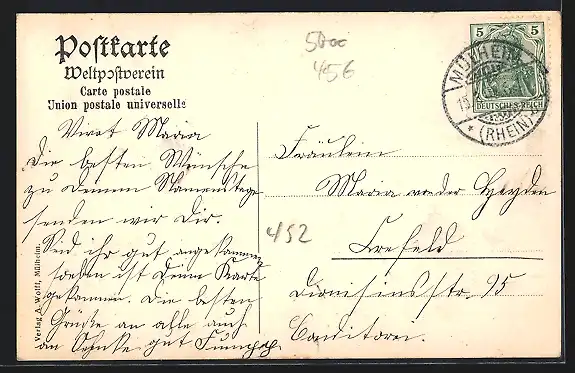 Postkarte
Weltpostverein
Carte postale
Union postale universelle
5 5
DEUTSCHES REICH
MÜLHEIM
(RHEIN)
5000
456
Vivat Maria
Die besten Wünsche
zu Deinem Namenstage
senden wir Dir.
Seid ihr gut angekommen
soeben ist Deine Karte
gekommen. Die besten
Grüße an alle auch
an gut
Fräulein
Maria von der Heyden
452
Crefeld
Dionisiusstr. 95
Conditorei.
Verlag A. Wolff, Mülheim.